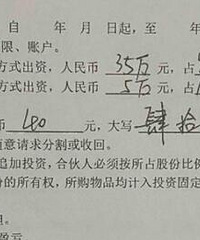 自 年 月 日起，至 年
限、账户。
方式出资，人民币 35万 元，占
方式出资，人民币 5万 元，占
币 40 元，大写 肆拾
随意请求分割或收回。
追加投资，合伙人必须按所占股份比例
份的所有权，所购物品均计入投资固定
担。
盈亏